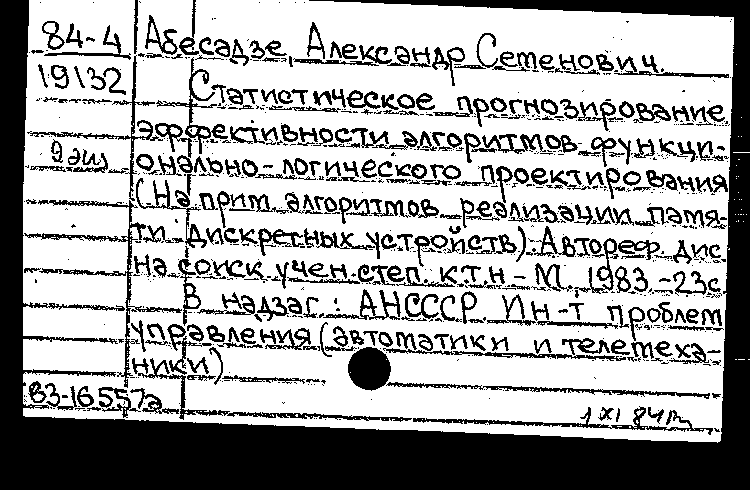 84-4 Абесадзе, Александр Сетенович.
19132 Статистическое прогнозирование
эффективности алгоритмов функци-
9 экз онально-логического проектирования
(На прим. алгоритмов реализации памя-
ти дискретных устройств). Автореф. дис.
на соиск. учен. степ. к.т.н - М., 1983. -23с
В надзаг.: АНСССР. Ин-т проблем
управления (автоматики и телемеха-
ники)
83-16557а
1 XI 84